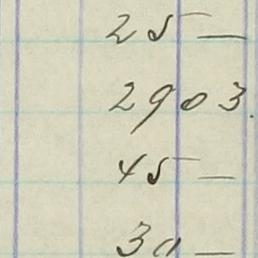 25 —
2903.
45 —
30 —